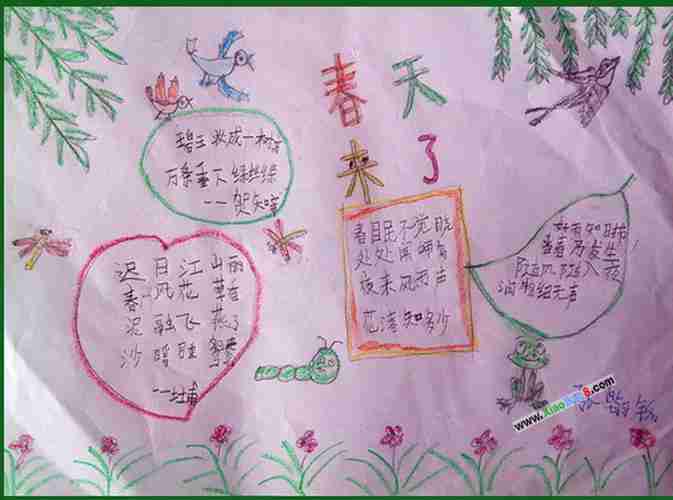 春天
来了
碧玉妆成一树高
万条垂下绿丝绦
——贺知章
迟日江山丽
春风花草香
泥融飞燕子
沙暖睡鸳鸯
——杜甫
春目民不觉晓
处处闻啼鸟
夜来风雨声
花落知多少
好雨知时节
当春乃发生
随风潜入夜
润物细无声
www.Xiao8.com